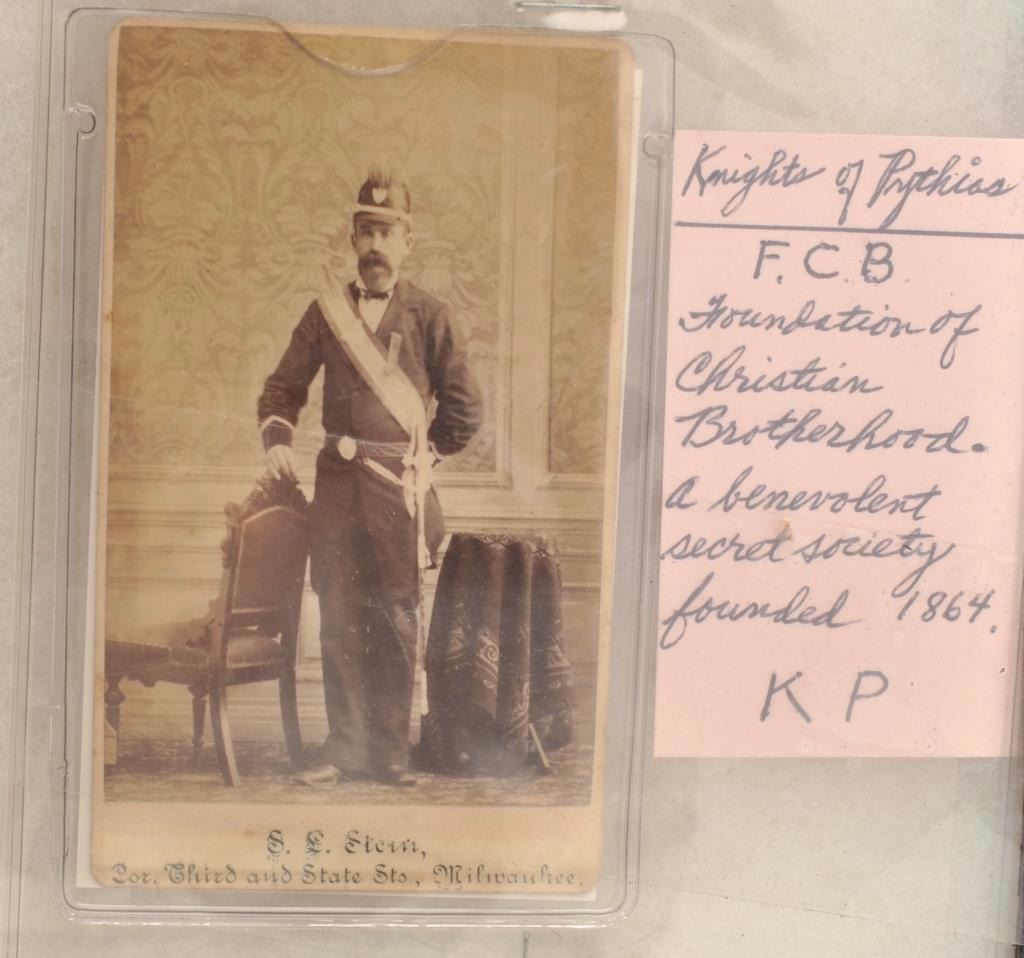 S. L. Stein,
Cor. Third and State Sts., Milwaukee.
Knights of Pythias
F.C.B
Foundation of
Christian
Brotherhood.
a benevolent
secret society
founded 1864.
K P